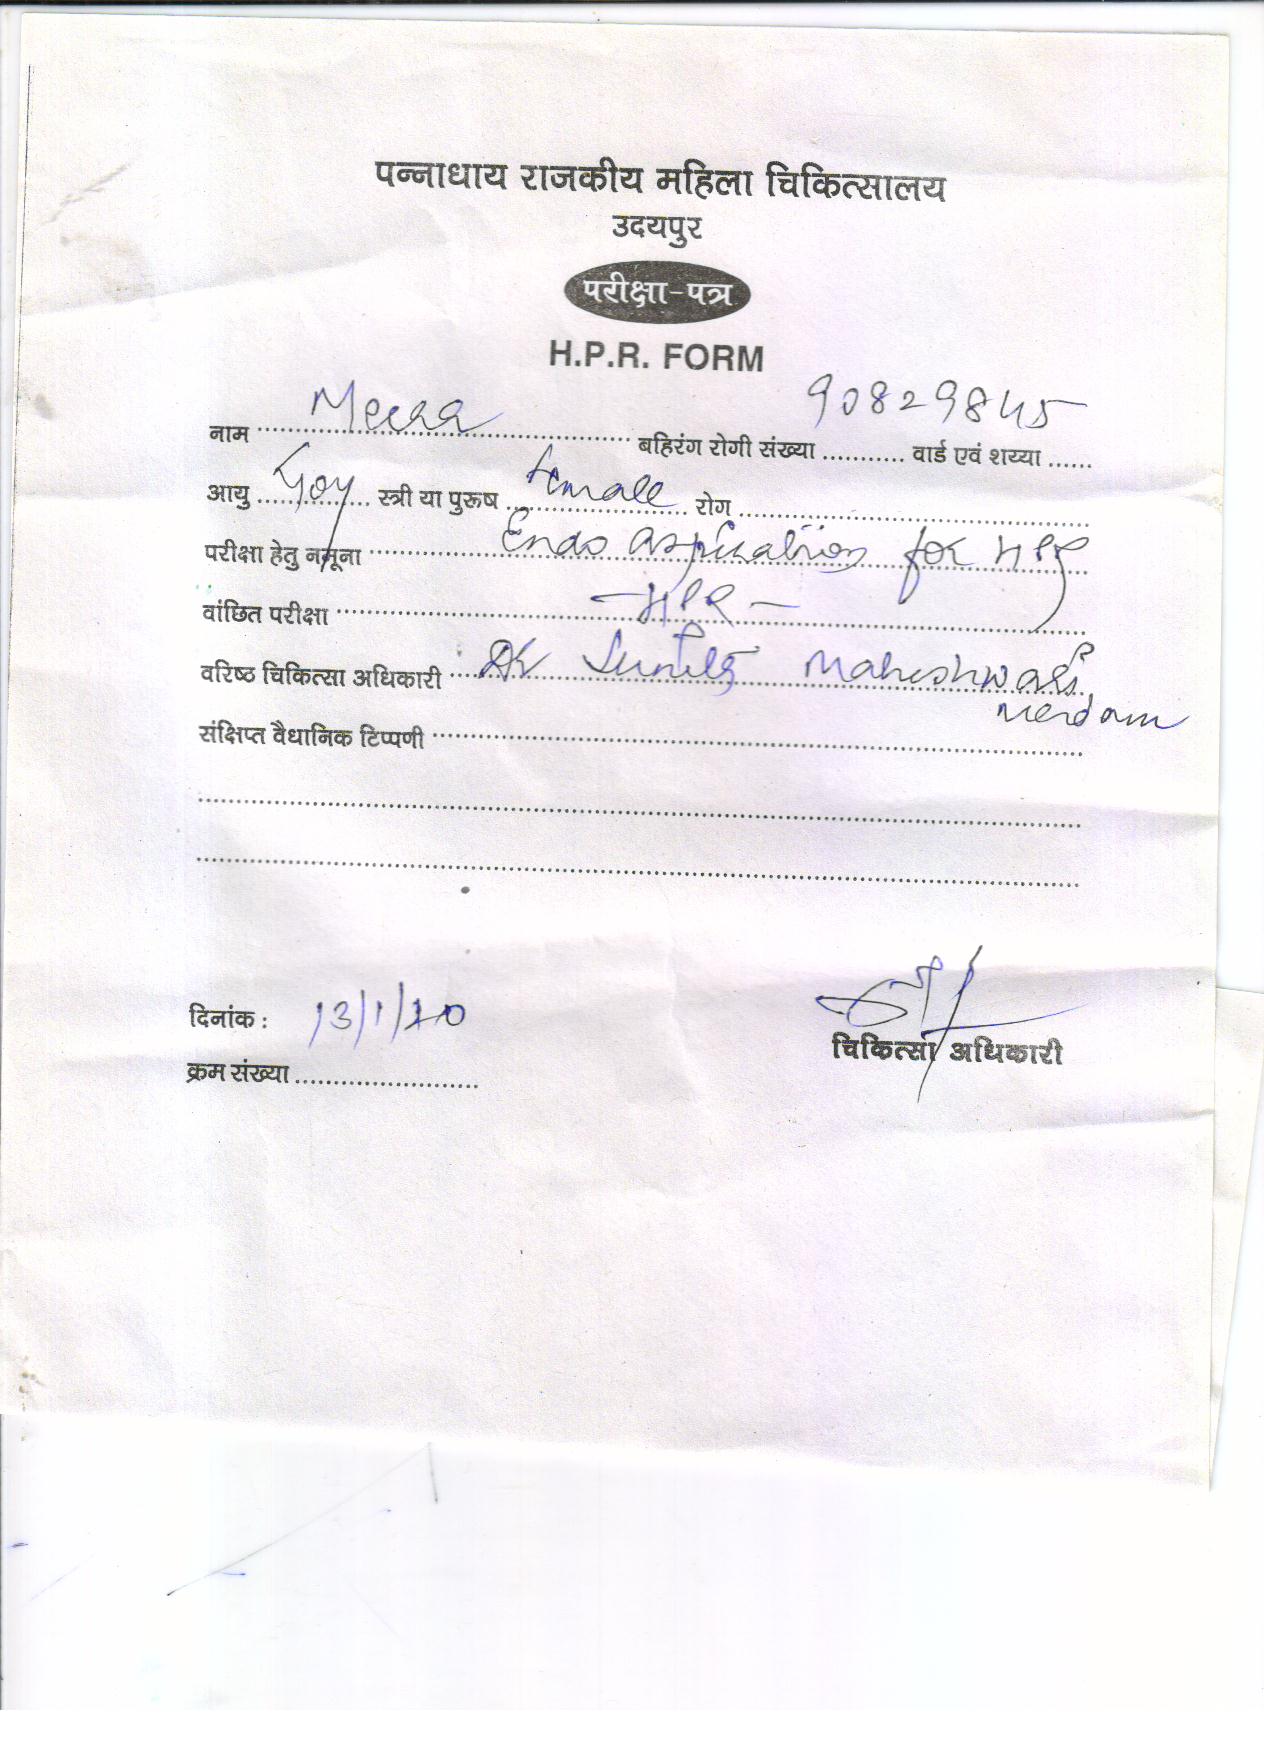 पन्नाधाय राजकीय महिला चिकित्सालय
उदयपुर
परीक्षा-पत्र
H.P.R. FORM
नाम Meena बहिरंग रोगी संख्या ........... वार्ड एवं शय्या ......
90829845
आयु स्त्री या पुरूष female रोग
परीक्षा हेतु नमूना Endo aspiration for HPR
वांछित परीक्षा -HPR-
वरिष्ठ चिकित्सा अधिकारी Dr Maheshwari
Medam
संक्षिप्त वैधानिक टिप्पणी
दिनांक : 13/1/20
चिकित्सा अधिकारी
क्रम संख्या